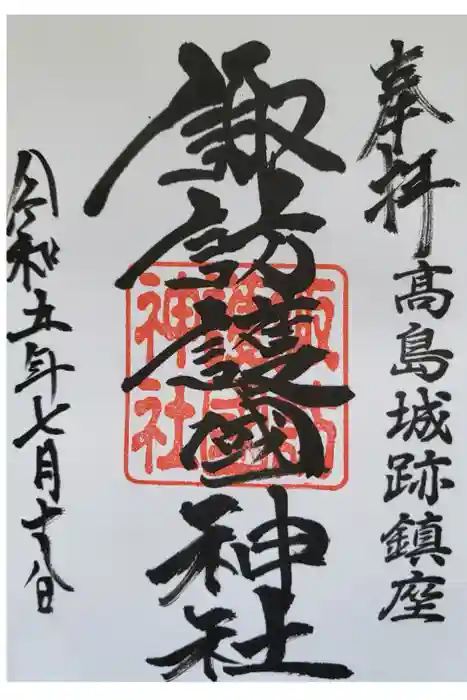 奉拝
高島城跡鎮座
諏訪護國神社
諏訪
護國
神社
令和五年七月十八日